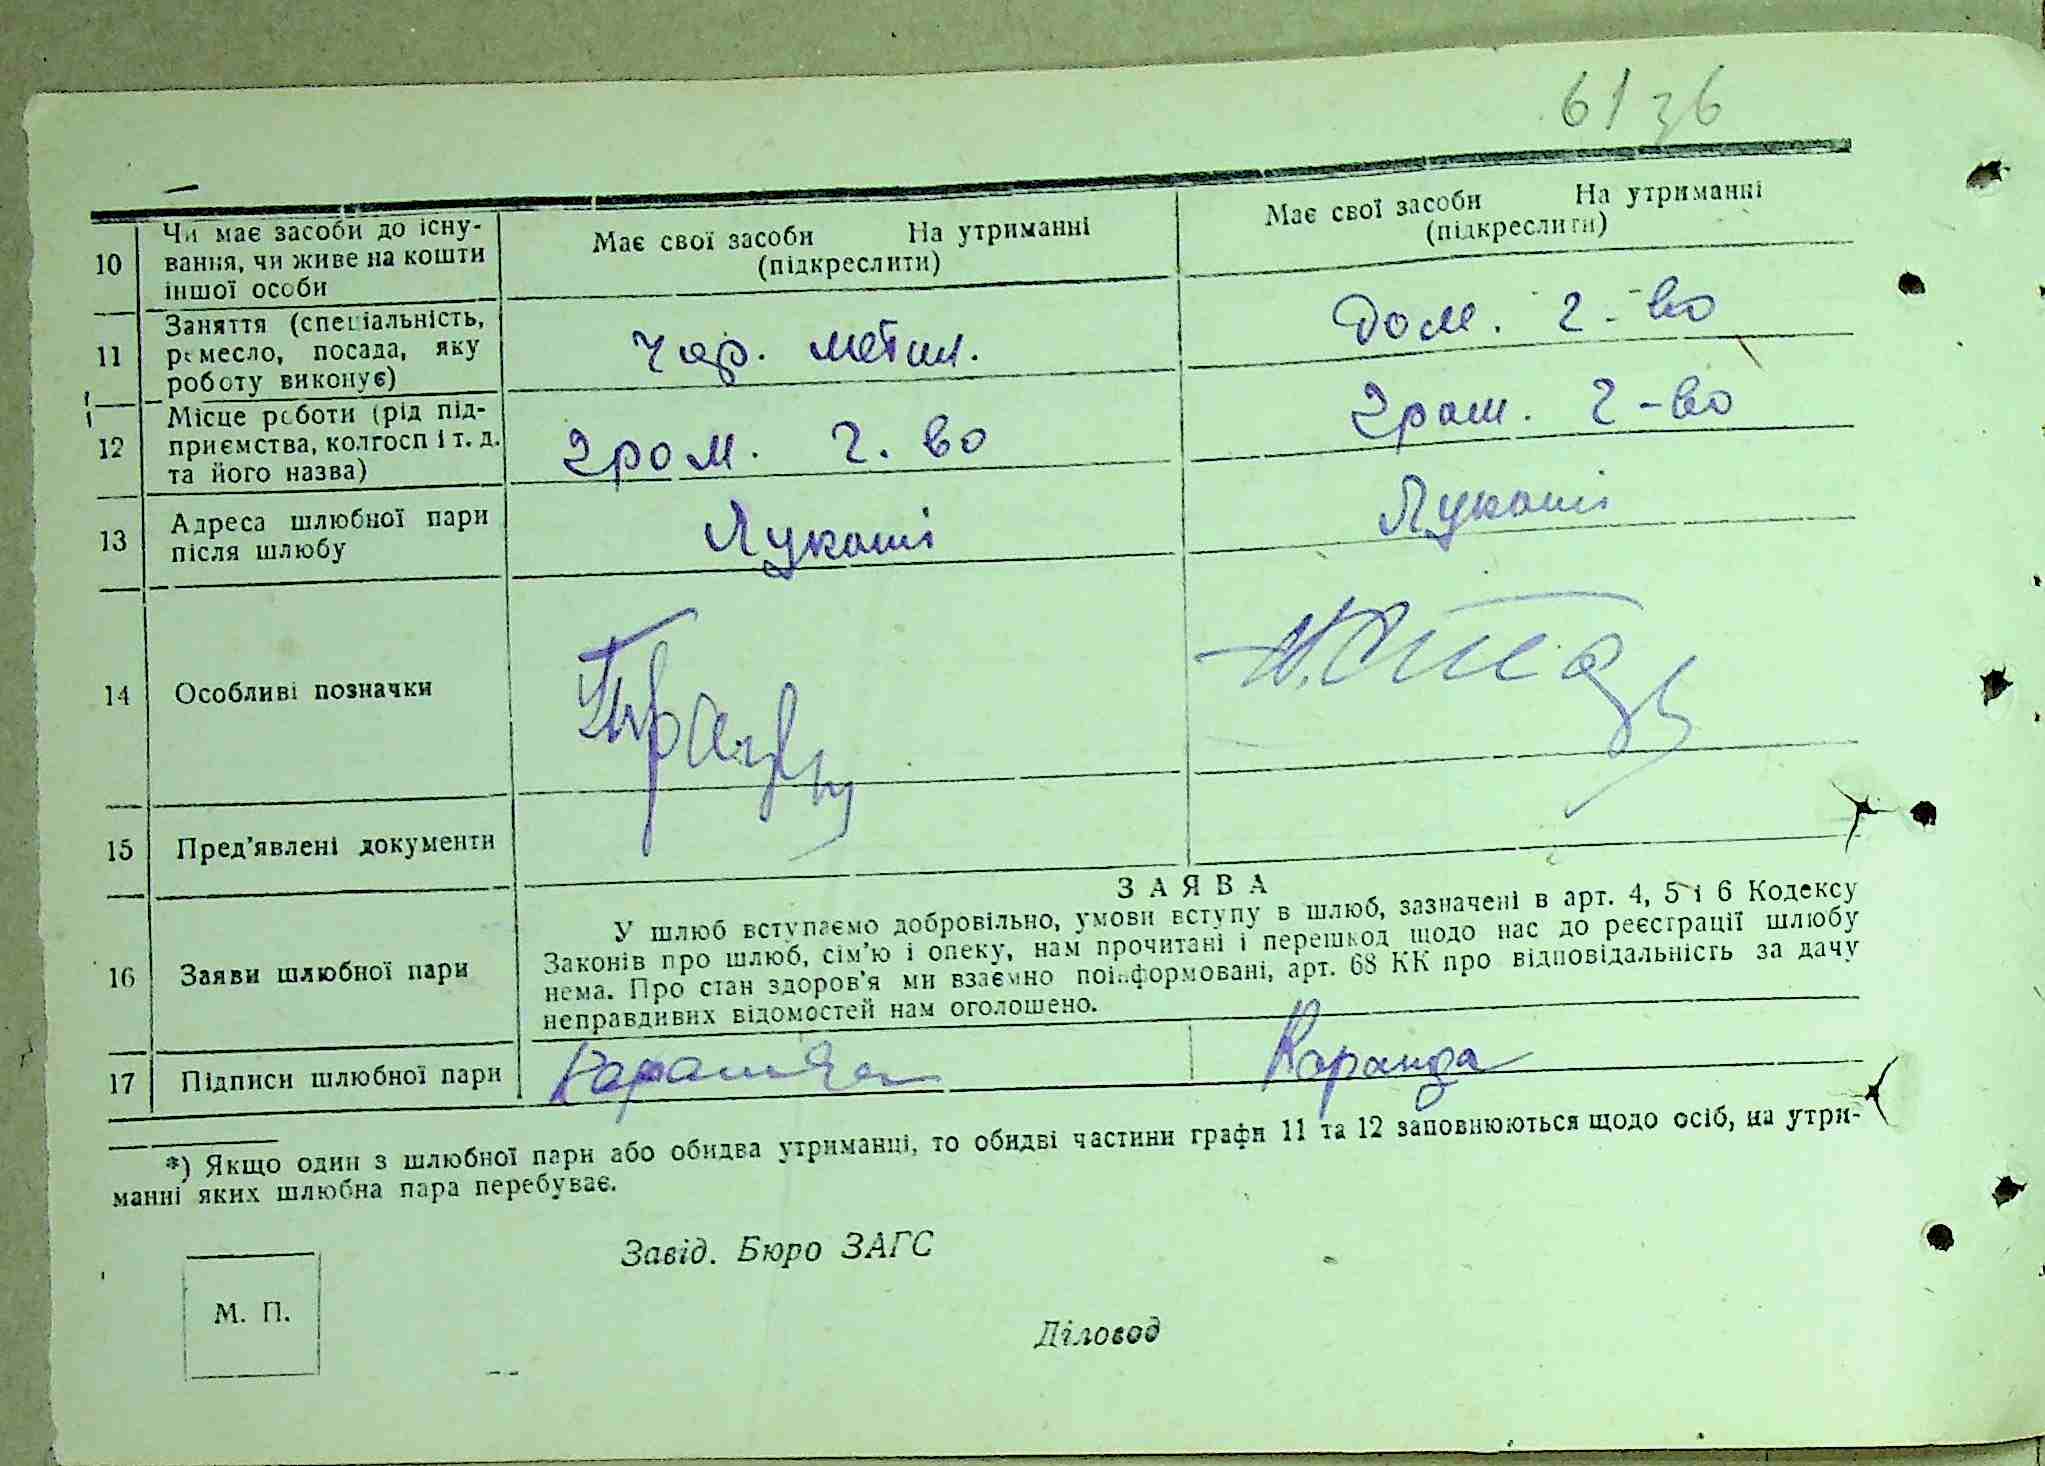 6136
10
Чи має засоби до існу-
вання, чи живе на кошти
іншої особи
Має свої засоби На утриманні
(підкреслити)
Має свої засоби На утриманні
(підкреслити)
11
Заняття (спеціальність,
ремесло, посада, яку
роботу виконує)
Чор. метал.
Дом. г-во
12
Місце роботи (рід під-
приємства, колгосп і т. д.
та його назва)
Гром. г. во
Гром. г-во
13
Адреса шлюбної пари
після шлюбу
Лукаші
Лукаші
14
Особливі позначки
15
Пред’явлені документи
16
Заяви шлюбної пари
ЗАЯВА
У шлюб вступаємо добровільно, умови вступу в шлюб, зазначені в арт. 4, 5 і 6 Кодексу
Законів про шлюб, сім’ю і опеку, нам прочитані і перешкод щодо нас до реєстрації шлюбу
нема. Про стан здоров’я ми взаємно поінформовані, арт. 68 КК про відповідальність за дачу
неправдивих відомостей нам оголошено.
17
Підписи шлюбної пари
Каранда
*) Якщо один з шлюбної пари або обидва утриманці, то обидві частини графи 11 та 12 заповнюються щодо осіб, на утри-
манні яких шлюбна пара перебуває.
Завід. Бюро ЗАГС
М. П.
Діловод